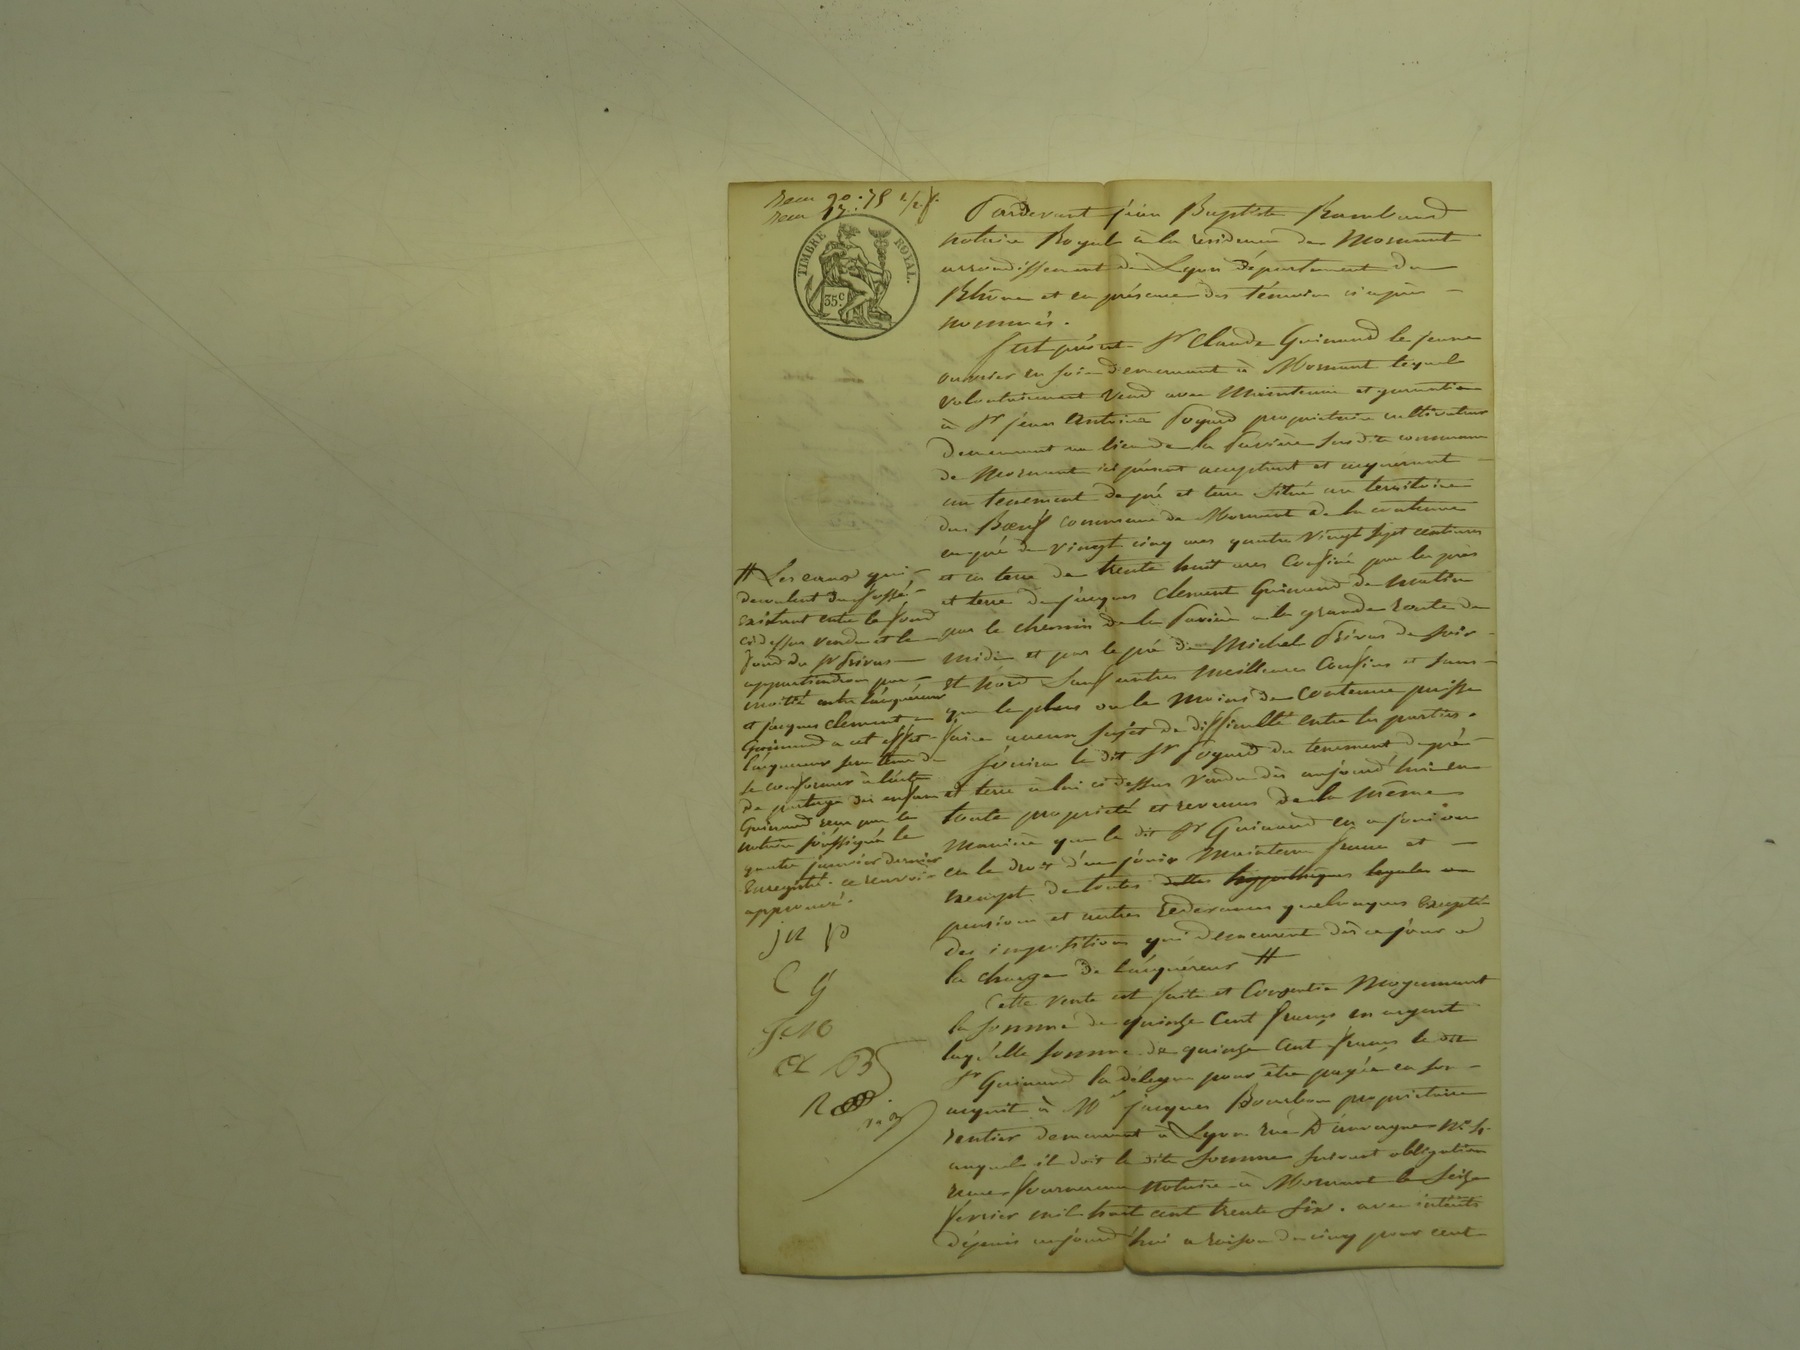 TIMBRE ROYAL.
35 c
Pardevant jean Baptiste Rambaud
notaire Royal à la residence de Mornant
arrondissement de Lyon département du
Rhône et en présence des témoins ci après
nommés.
fut présent Sr Claude Guinand le jeune
ouvrier en soie demeurant à Mornant lequel
volontairement vend avec Maintenue et garantie
à Sr jean Antoine Poyard propriétaire cultivateur
demeurant au lieu de la Pavière susdite commune
de Mornant ici présent acceptant et acquérant
un tenement de pré et terre situé au territoire
du Bœuf commune de Mornant de la contenue
en pré de vingt cinq ares quatre vingt sept centiares
et en terre de trente huit ares Confiné par les prés
et terre de jacques Clement Guinand de matin
par le chemin de la Pavière a la grande route de
midi et par le pré de Michel Privas de soir
et Nord Sauf autres meilleurs Confins et sans
que le plus ou le moins de Contenue puisse
faire aucun sujet de difficulté entre les parties.
jouira le dit Sr Poyard du tenement de pré
et terre à lui ci dessus vendu dès aujourd'hui en
toute propriété et revenus de la même
manière que le dit Sr Guinand en a joui ou
eu le droit d'en jouir Maintenu franc et
exempt de toutes dettes hypothèques legales ou
pensions et autres redevances quelconques Excepté
des impositions qui demeurent dès ce jour a
la charge de l'acquéreur #
Cette vente est faite et Consentie Moyennant
la somme de quinze cent francs en argent
laquelle somme de quinze cent francs le dit
Sr Guinand la délègue pour être payée en son
acquit à Mr jacques Bourbon propriétaire
rentier demeurant à Lyon rue D'auvergne No
auquel il doit la dite somme suivant obligation
reçue notaire à Mornant le Seize
février mil huit cent trente six. avec intérêts
depuis aujourd'hui a raison de cinq pour cent
# Les eaux qui
decoulent du fossé
existant entre le fond
ci dessus vendu et le
fond du Sr Privas
appartiendront par
moitié entre l'acquéreur
et jacques Clement
Guinand a cet effet
l'acquereur sera tenu de
se conformer à l'acte
de partage des enfans
Guinand reçu par le
notaire soussigné le
quatre janvier dernier
Enregistré. ce renvoi
approuvé.
C G